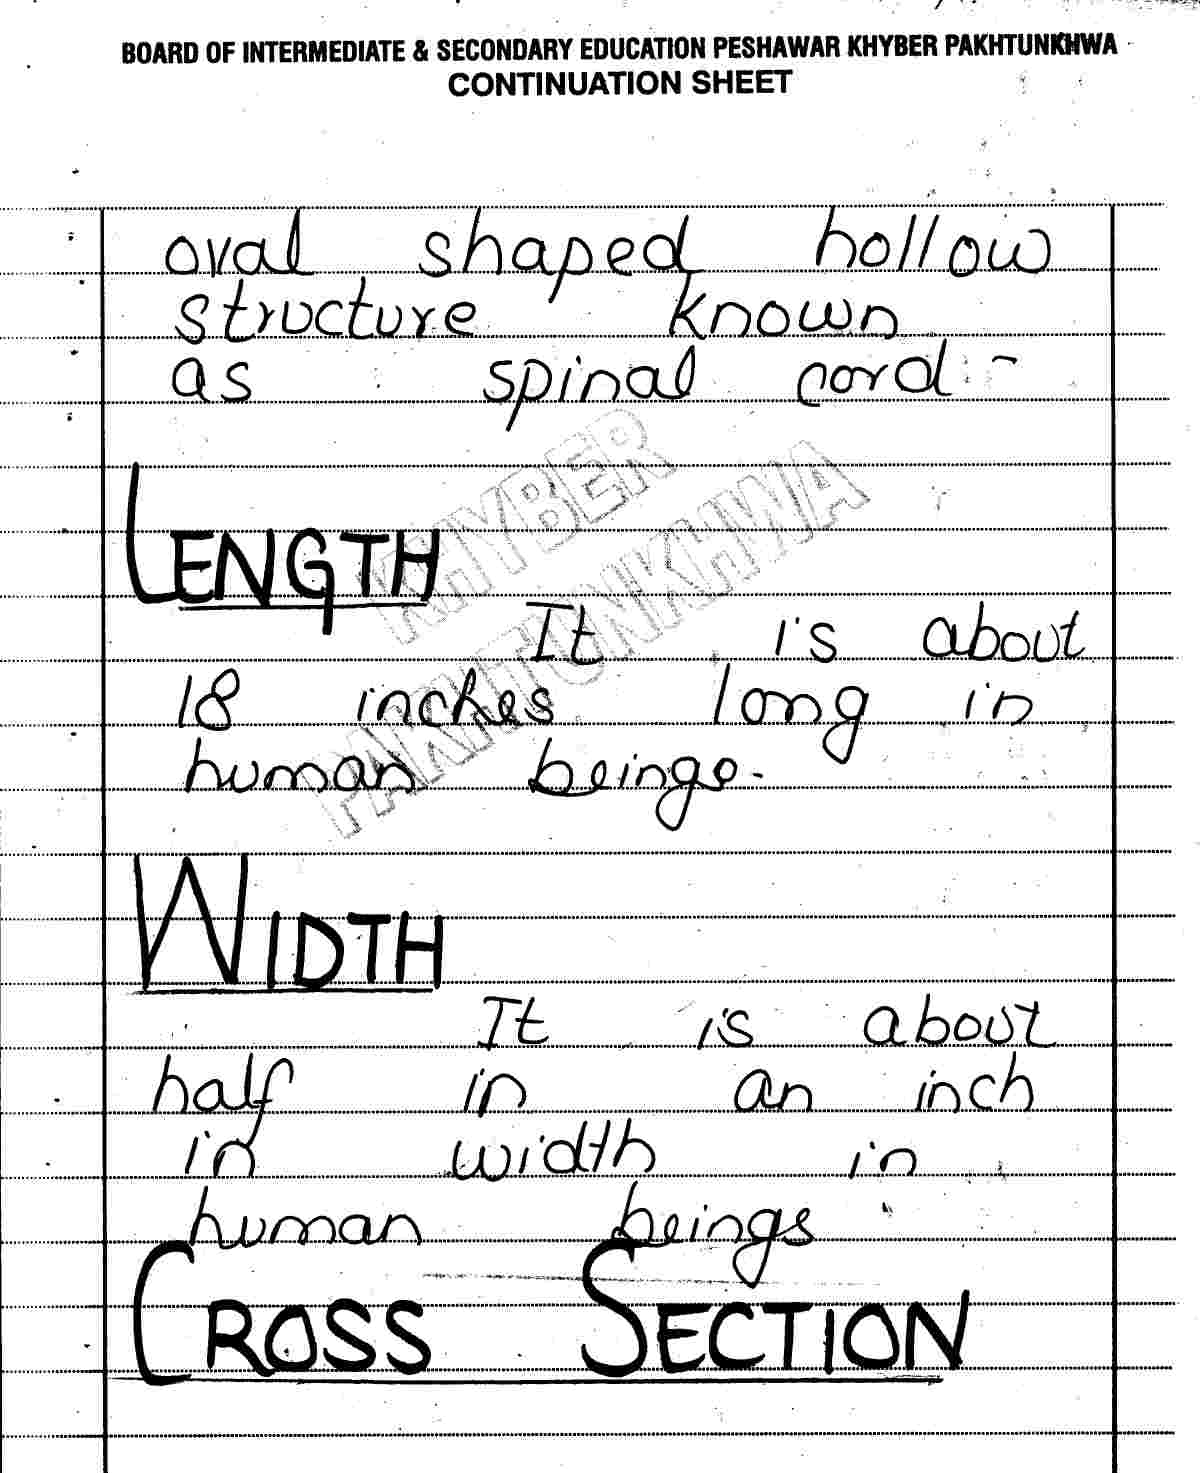 BOARD OF INTERMEDIATE & SECONDARY EDUCATION PESHAWAR KHYBER PAKHTUNKHWA
CONTINUATION SHEET
oval shaped hollow
structure known
as spinal cord -
KHYBER
PAKHTUNKHWA
LENGTH
It is about
18 inches long in
human beings.
WIDTH
It is about
half in an inch
in width in
human beings
CROSS SECTION